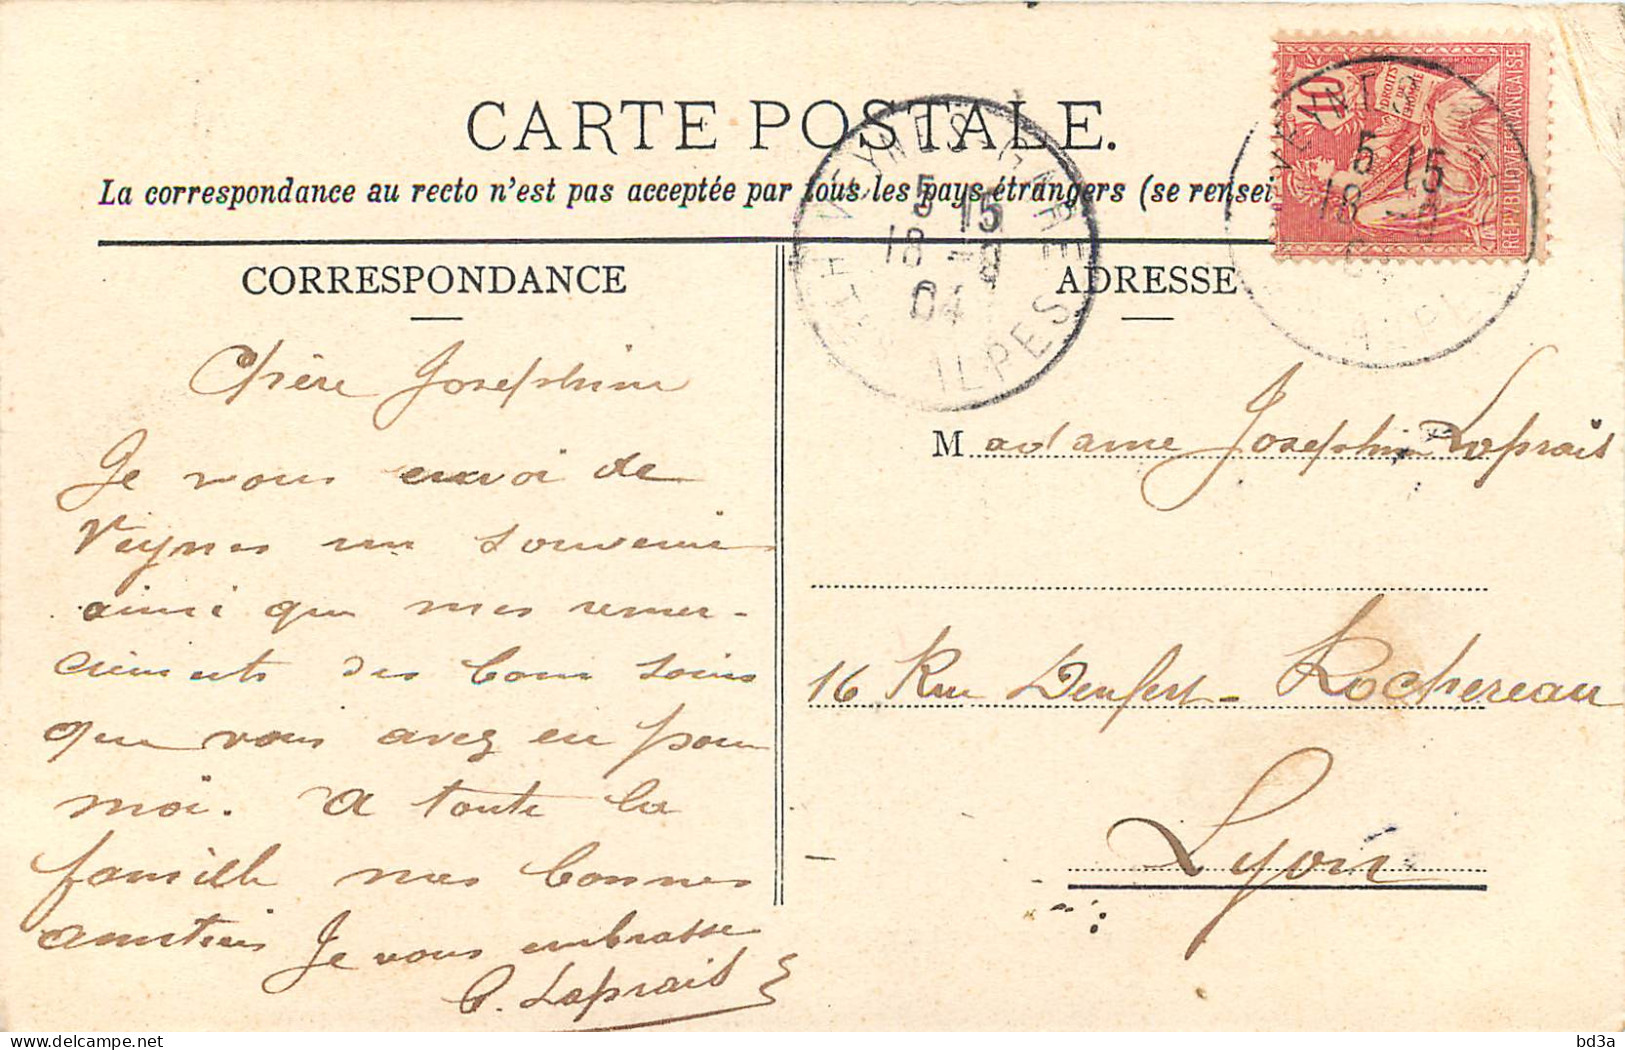 CARTE POSTALE.
La correspondance au recto n'est pas acceptée par tous les pays étrangers (se rensei
CORRESPONDANCE
Chère Josephine
Je vous envoi de
Veynes un souvenir
ainsi que mes remer-
ciements des bons soins
que vous avez eu pour
moi. A toute la
famille mes bonnes
amitiés Je vous embrasse
Laprais
ADRESSE
Madame Josephine Laprais
16 Rue Denfert-Rochereau
Lyon
VEYNES-GARE
5 15
18 -8
04
HTES ALPES
10
DROITS
DE
L'HOMME
REPUBLIQUE FRANÇAISE
5 15
18
bd3a